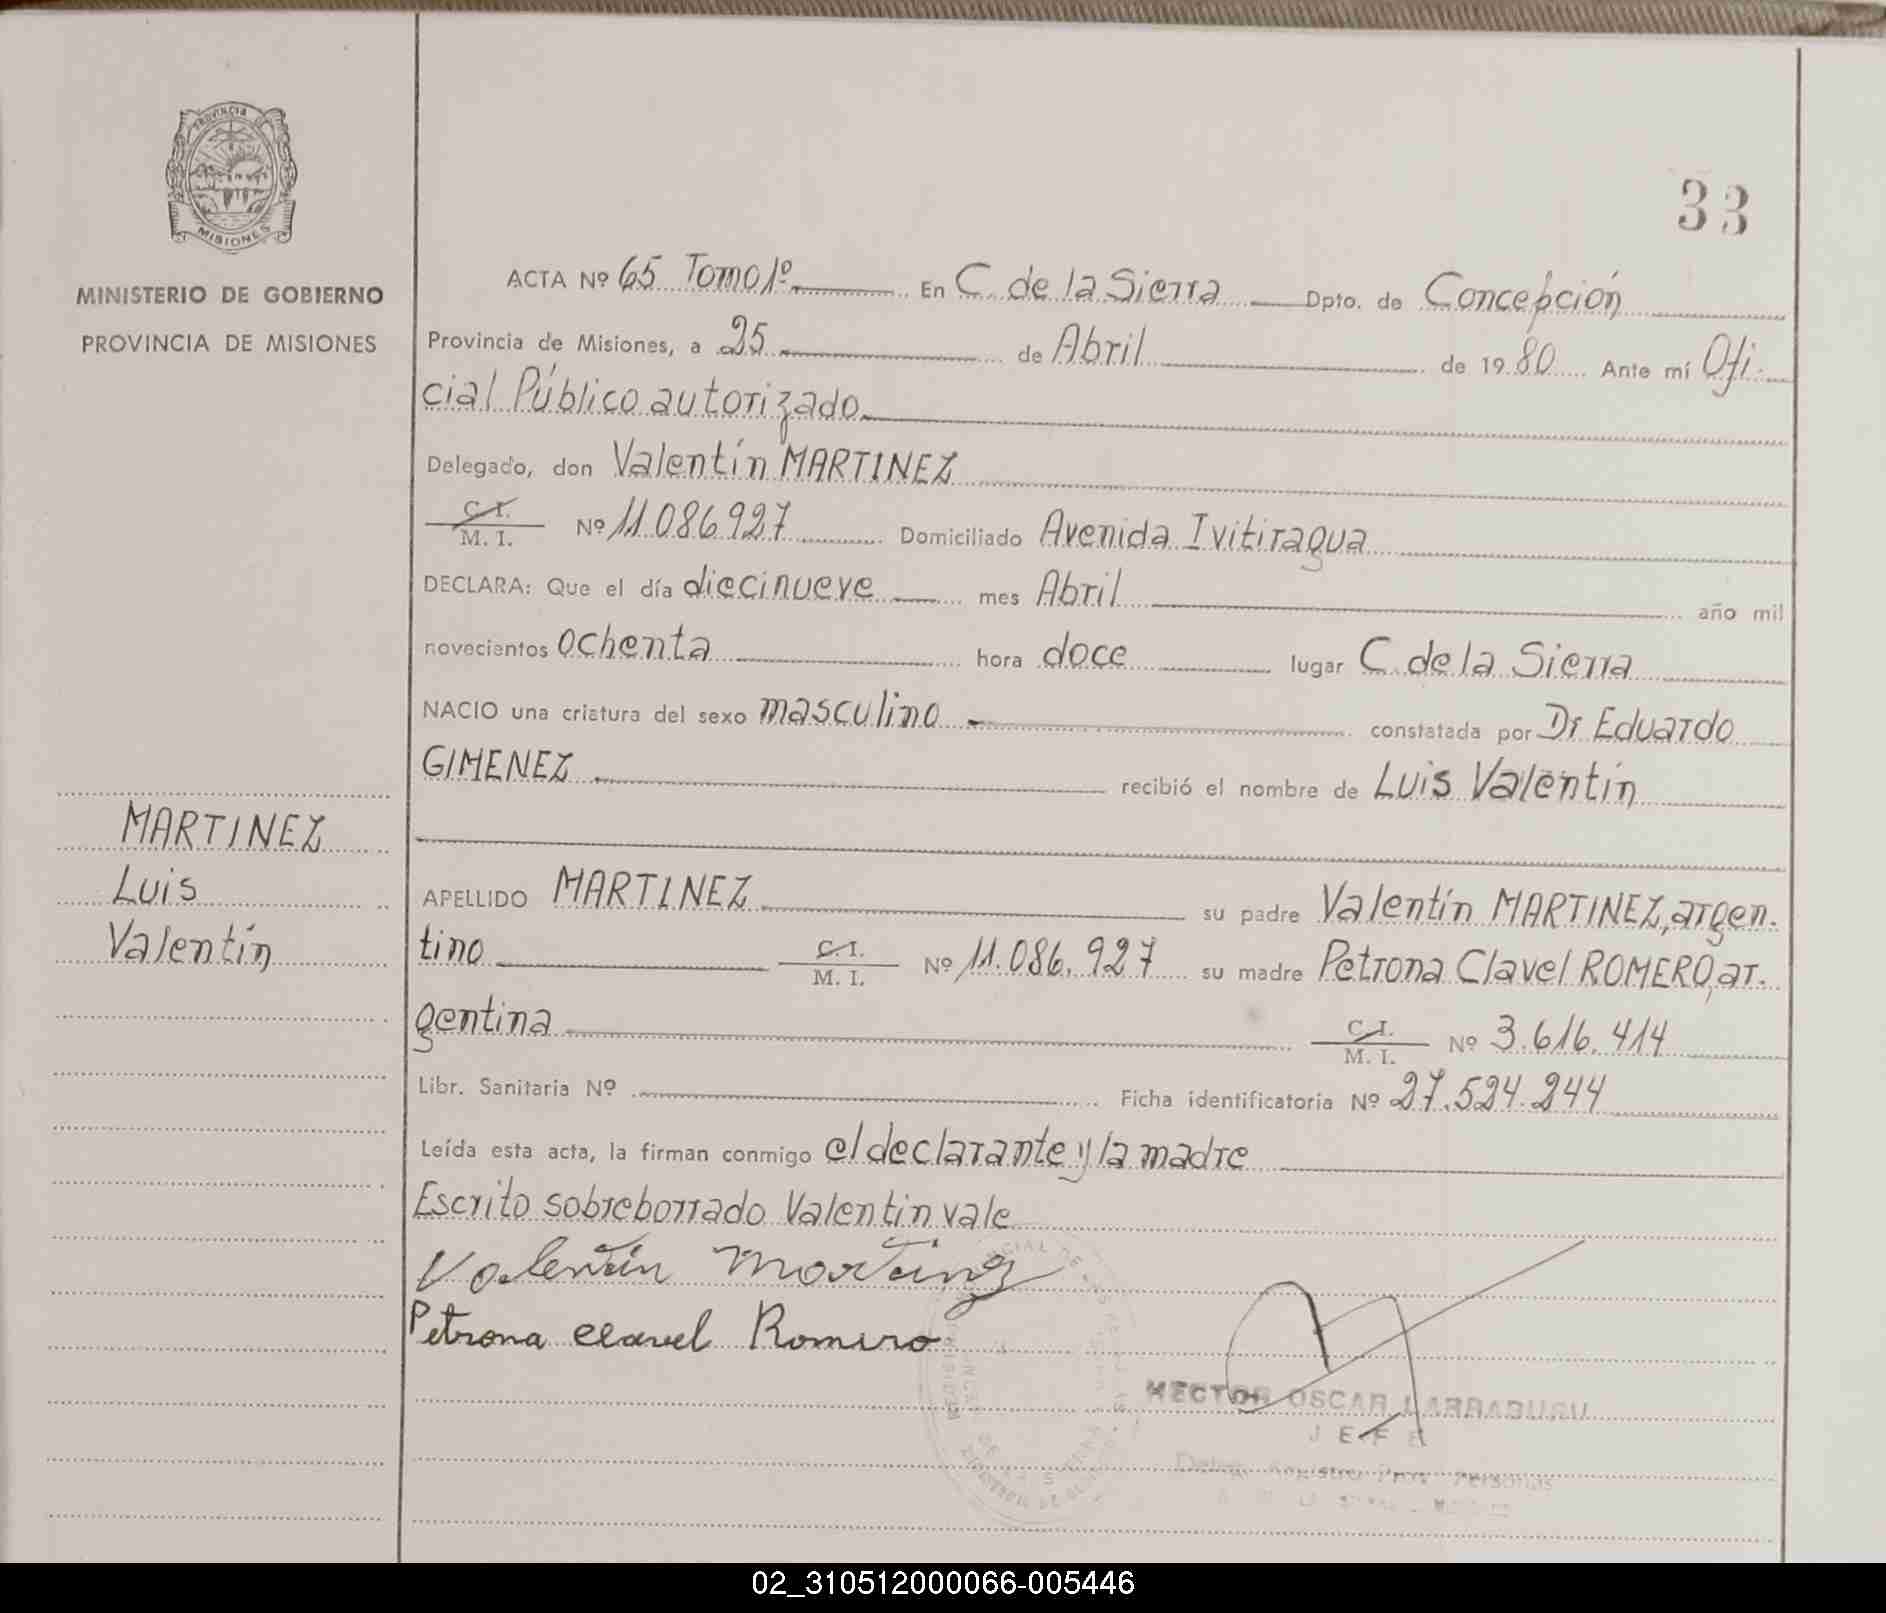 PROVINCIA DE
MISIONES
MINISTERIO DE GOBIERNO
PROVINCIA DE MISIONES
33
ACTA Nº 65 Tomo 1º En C. de la Sierra Dpto. de Concepción
Provincia de Misiones, a 25 de Abril de 1980 Ante mí Ofi-
cial Público autorizado
Delegado, don Valentín MARTINEZ
C. I. / M. I. Nº 11.086.927 Domiciliado Avenida Ivitiragua
DECLARA: Que el día diecinueve mes Abril año mil
novecientos ochenta hora doce lugar C. de la Sierra
NACIO una criatura del sexo masculino constatada por Dr Eduardo
GIMENEZ recibió el nombre de Luis Valentín
MARTINEZ
Luis
Valentín
APELLIDO MARTINEZ su padre Valentín MARTINEZ, argen-
tino C. I. / M. I. Nº 11.086.927 su madre Petrona Clavel ROMERO, ar-
gentina C. I. / M. I. Nº 3.616.414
Libr. Sanitaria Nº Ficha identificatoria Nº 27.524.244
Leída esta acta, la firman conmigo el declarante y la madre
Escrito sobreborrado Valentin vale
Valentín Martinez
Petrona Clavel Romero
HECTOR OSCAR LARRABURU
JEFE
02_310512000066-005446